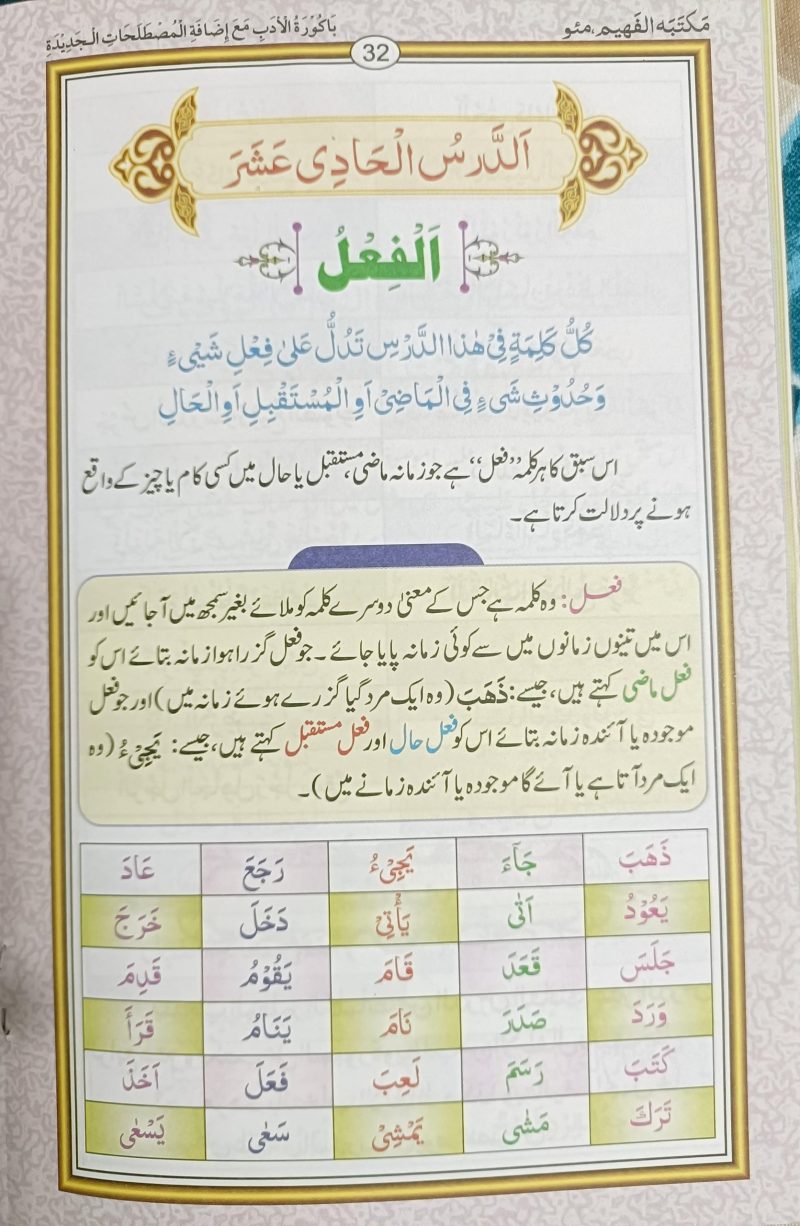 مَكتَبَه الفَهِيم،مئو
بَاكُوْرَةُ الْأَدَبِ مَعَ إِضَافَةِ الْمُصْطَلَحَاتِ الْجَدِيْدَةِ
32
اَلدَّرسُ الْحَادِی عَشَرَ
اَلْفِعْلُ
كُلُّ كَلِمَةٍ فِیْ هٰذَا الدَّرْسِ تَدُلُّ عَلیٰ فِعْلِ شَیْیءٍ
وَحُدُوْثِ شَیءٍ فِی الْمَاضِیْ اَوِ الْمُسْتَقْبِلِ اَوِ الْحَالِ
اس سبق کا ہر کلمہ ’’فعل‘‘ ہے جو زمانہ ماضی، مستقبل یا حال میں کسی کام یا چیز کے واقع
ہونے پر دلالت کرتا ہے۔
فعل: وہ کلمہ ہے جس کے معنیٰ دوسرے کلمہ کو ملائے بغیر سمجھ میں آجائیں اور
اس میں تینوں زمانوں میں سے کوئی زمانہ پایا جائے۔ جو فعل گزرا ہوا زمانہ بتائے اس کو
فعل ماضی کہتے ہیں، جیسے: ذَهَبَ (وہ ایک مرد گیا گزرے ہوئے زمانہ میں) اور جو فعل
موجودہ یا آئندہ زمانہ بتائے اس کو فعل حال اور فعل مستقبل کہتے ہیں، جیسے: يَجِیْءُ (وہ
ایک مرد آتا ہے یا آئے گا موجودہ یا آئندہ زمانے میں)۔
ذَهَبَ جَآءَ يَجِیْءُ رَجَعَ عَادَ
يَعُوْدُ اَتٰى يَأْتِیْ دَخَلَ خَرَجَ
جَلَسَ قَعَدَ قَامَ يَقُوْمُ قَدِمَ
وَرَدَ صَدَرَ نَامَ يَنَامُ قَرَأَ
كَتَبَ رَسَمَ لَعِبَ فَعَلَ اَخَذَ
تَرَكَ مَشٰى يَمْشِیْ سَعٰى يَسْعٰى